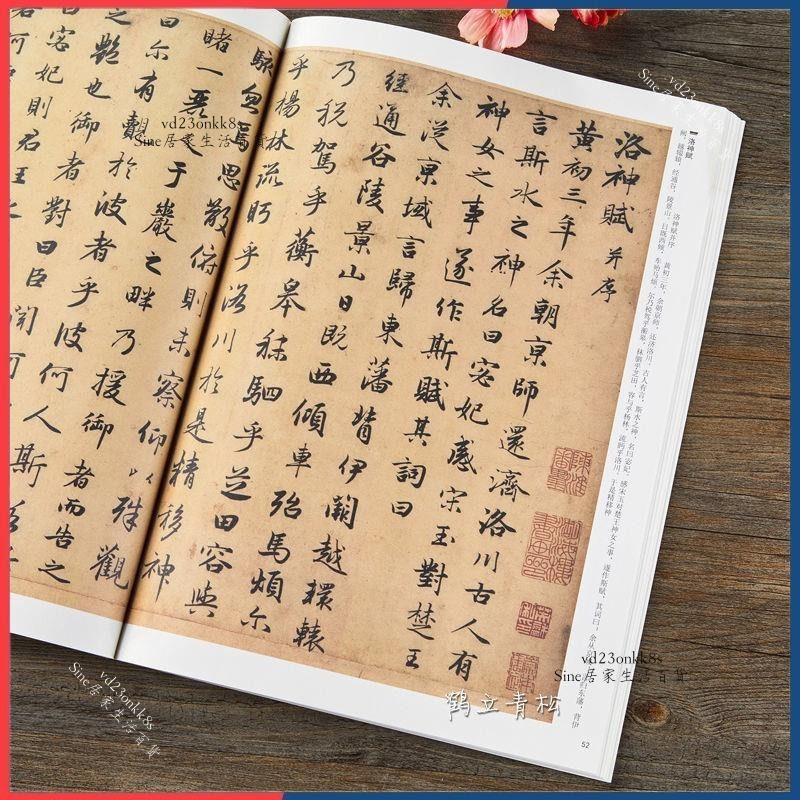 洛神赋
洛神赋并序 黄初三年，余朝京师，还济洛川。古人有言，斯水之神，名曰宓妃。感宋玉对楚王神女之事，遂作斯赋，其词曰：余从 归东藩，背伊
阙，越轘辕，经通谷，陵景山。日既西倾，车殆马烦。尔乃税驾乎蘅皋，秣驷乎芝田，容与乎杨林，流眄乎洛川。于是精移神
洛神賦 并序
黄初三年余朝京師還濟洛川古人有
言斯水之神名曰宓妃感宋玉對楚王
神女之事遂作斯賦其詞曰
余從京域言歸東藩背伊闕越轘轅
經通谷陵景山日既西傾車殆馬煩尒
乃税駕乎蘅皋秣駟乎芝田容與
乎楊林流眄乎洛川於是精移神
駭忽焉思散俯則未察仰以殊觀
睹一麗人于巖之畔乃援御者而告之
曰尒有覿於彼者乎彼何人斯
之艷也御者對曰臣聞河
宓妃則君王
52
鹤立青松
vd23onkk8s
Sine居家生活百貨
vd23onkk8s
Sine居家生活百貨
vd23onkk8s
Sine居家生活百貨
vd23onkk8s
Sine居家生活百貨